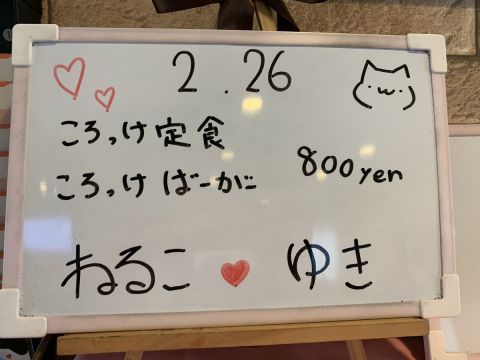 2.26
ころっけ定食
ころっけ ばーがー
800yen
ねるこ ♥ ゆき